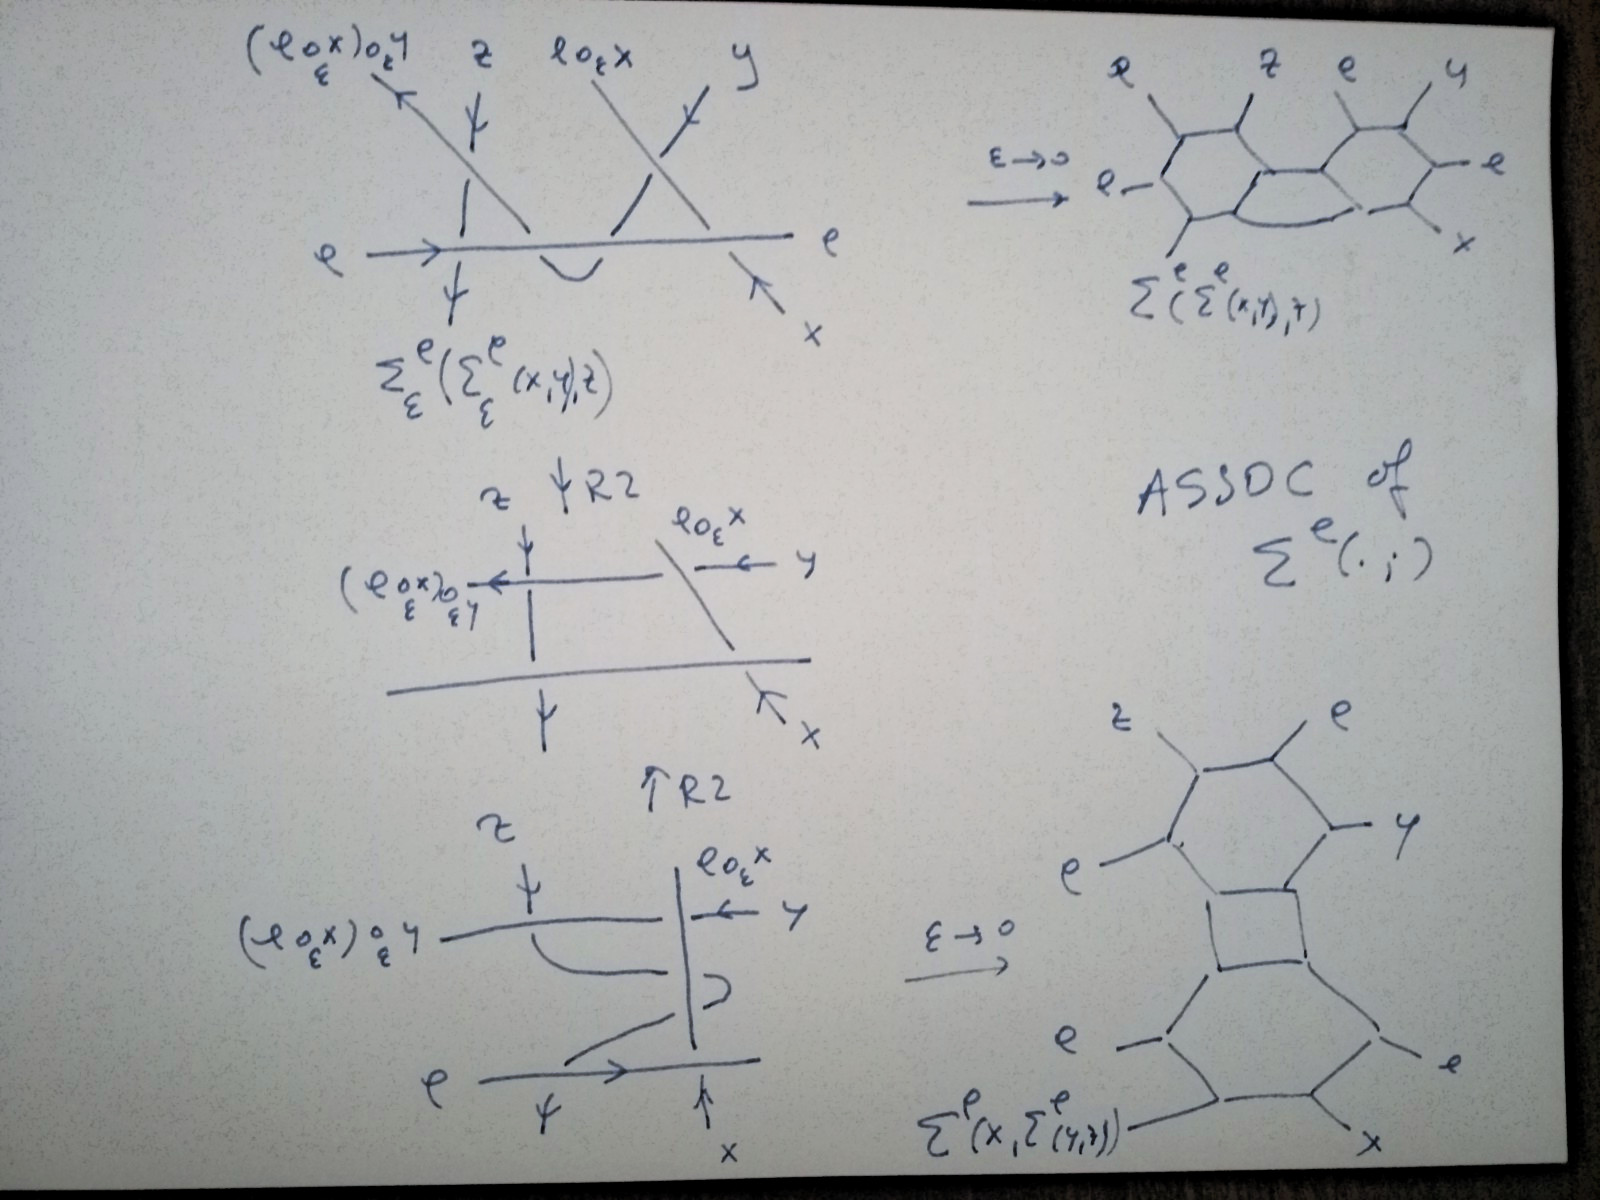 (e o_ε x) o_ε y z e o_ε x y
e e
x
Σ_ε^e (Σ_ε^e (x,y),z)
ε→0
e z e y
e e
x
Σ^e (Σ^e (x,y),z)
↓ R2
z e o_ε x
(e o_ε x) o_ε y y
x
ASSOC of
Σ^e (·,·)
↑ R2
z e o_ε x
(e o_ε x) o_ε y y
e
x
ε→0
z e
e y
e e
Σ^e (x, Σ^e (y,z)) x